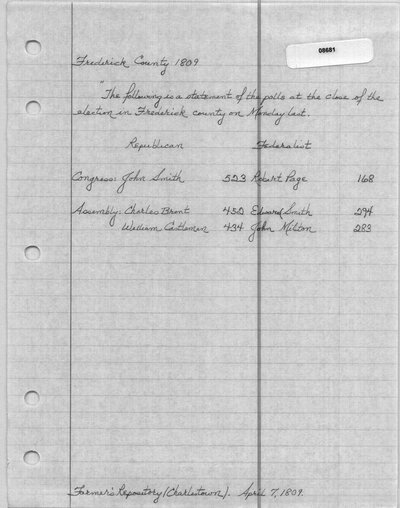 08681
Frederick County 1809
"The following is a statement of the polls at the close of the
election in Frederick county on Monday last.
Republican Federalist
Congress: John Smith 523 Robert Page 168
Assembly: Charles Brent 452 Edward Smith 294
William Castleman 434 John Milton 283
Farmer's Repository (Charlestown). April 7, 1809.